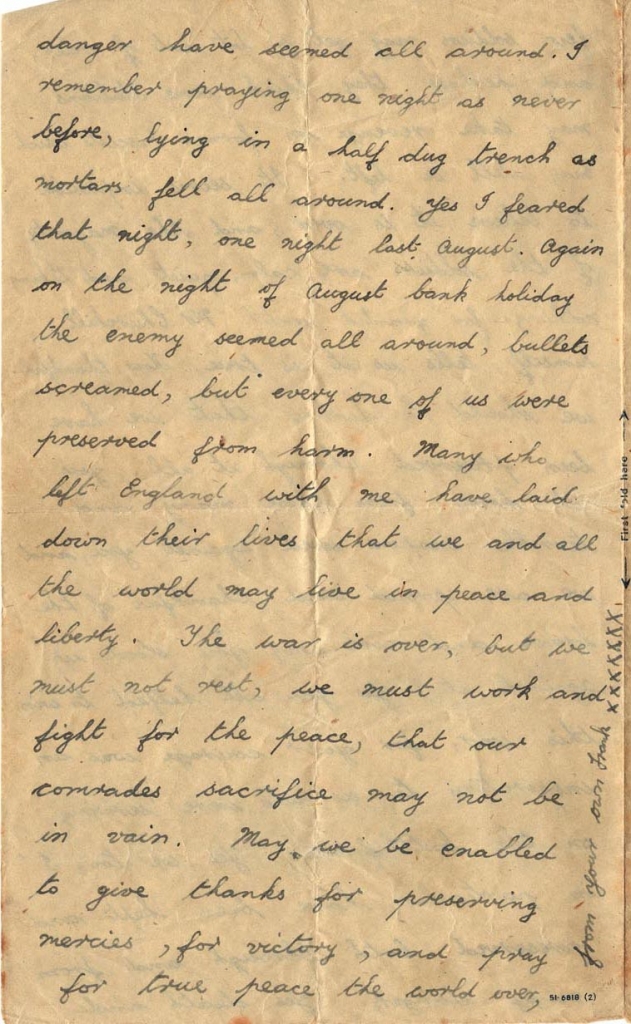 danger have seemed all around. I
remember praying one night as never
before, lying in a half dug trench as
mortars fell all around. Yes I feared
that night, one night last August. Again
on the night of August bank holiday
the enemy seemed all around, bullets
screamed, but every one of us were
preserved from harm. Many who
left England with me have laid
down their lives that we and all
the world may live in peace and
liberty. The war is over, but we
must not rest, we must work and
fight for the peace, that our
comrades sacrifice may not be
in vain. May we be enabled
to give thanks for preserving
mercies, for victory, and pray
for true peace the world over,
from your own Frank xxxxxxx
First fold here
51-6818 (2)